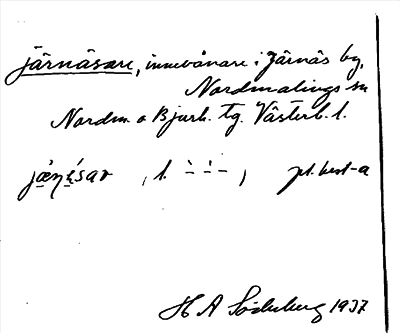 järnäsare, innevånare i Järnäs by,
Nordmalings sn
Nordm. o Bjurh. tg. Västerb. l.
, l. – – – , pl. best -a
H A Söderberg 1937